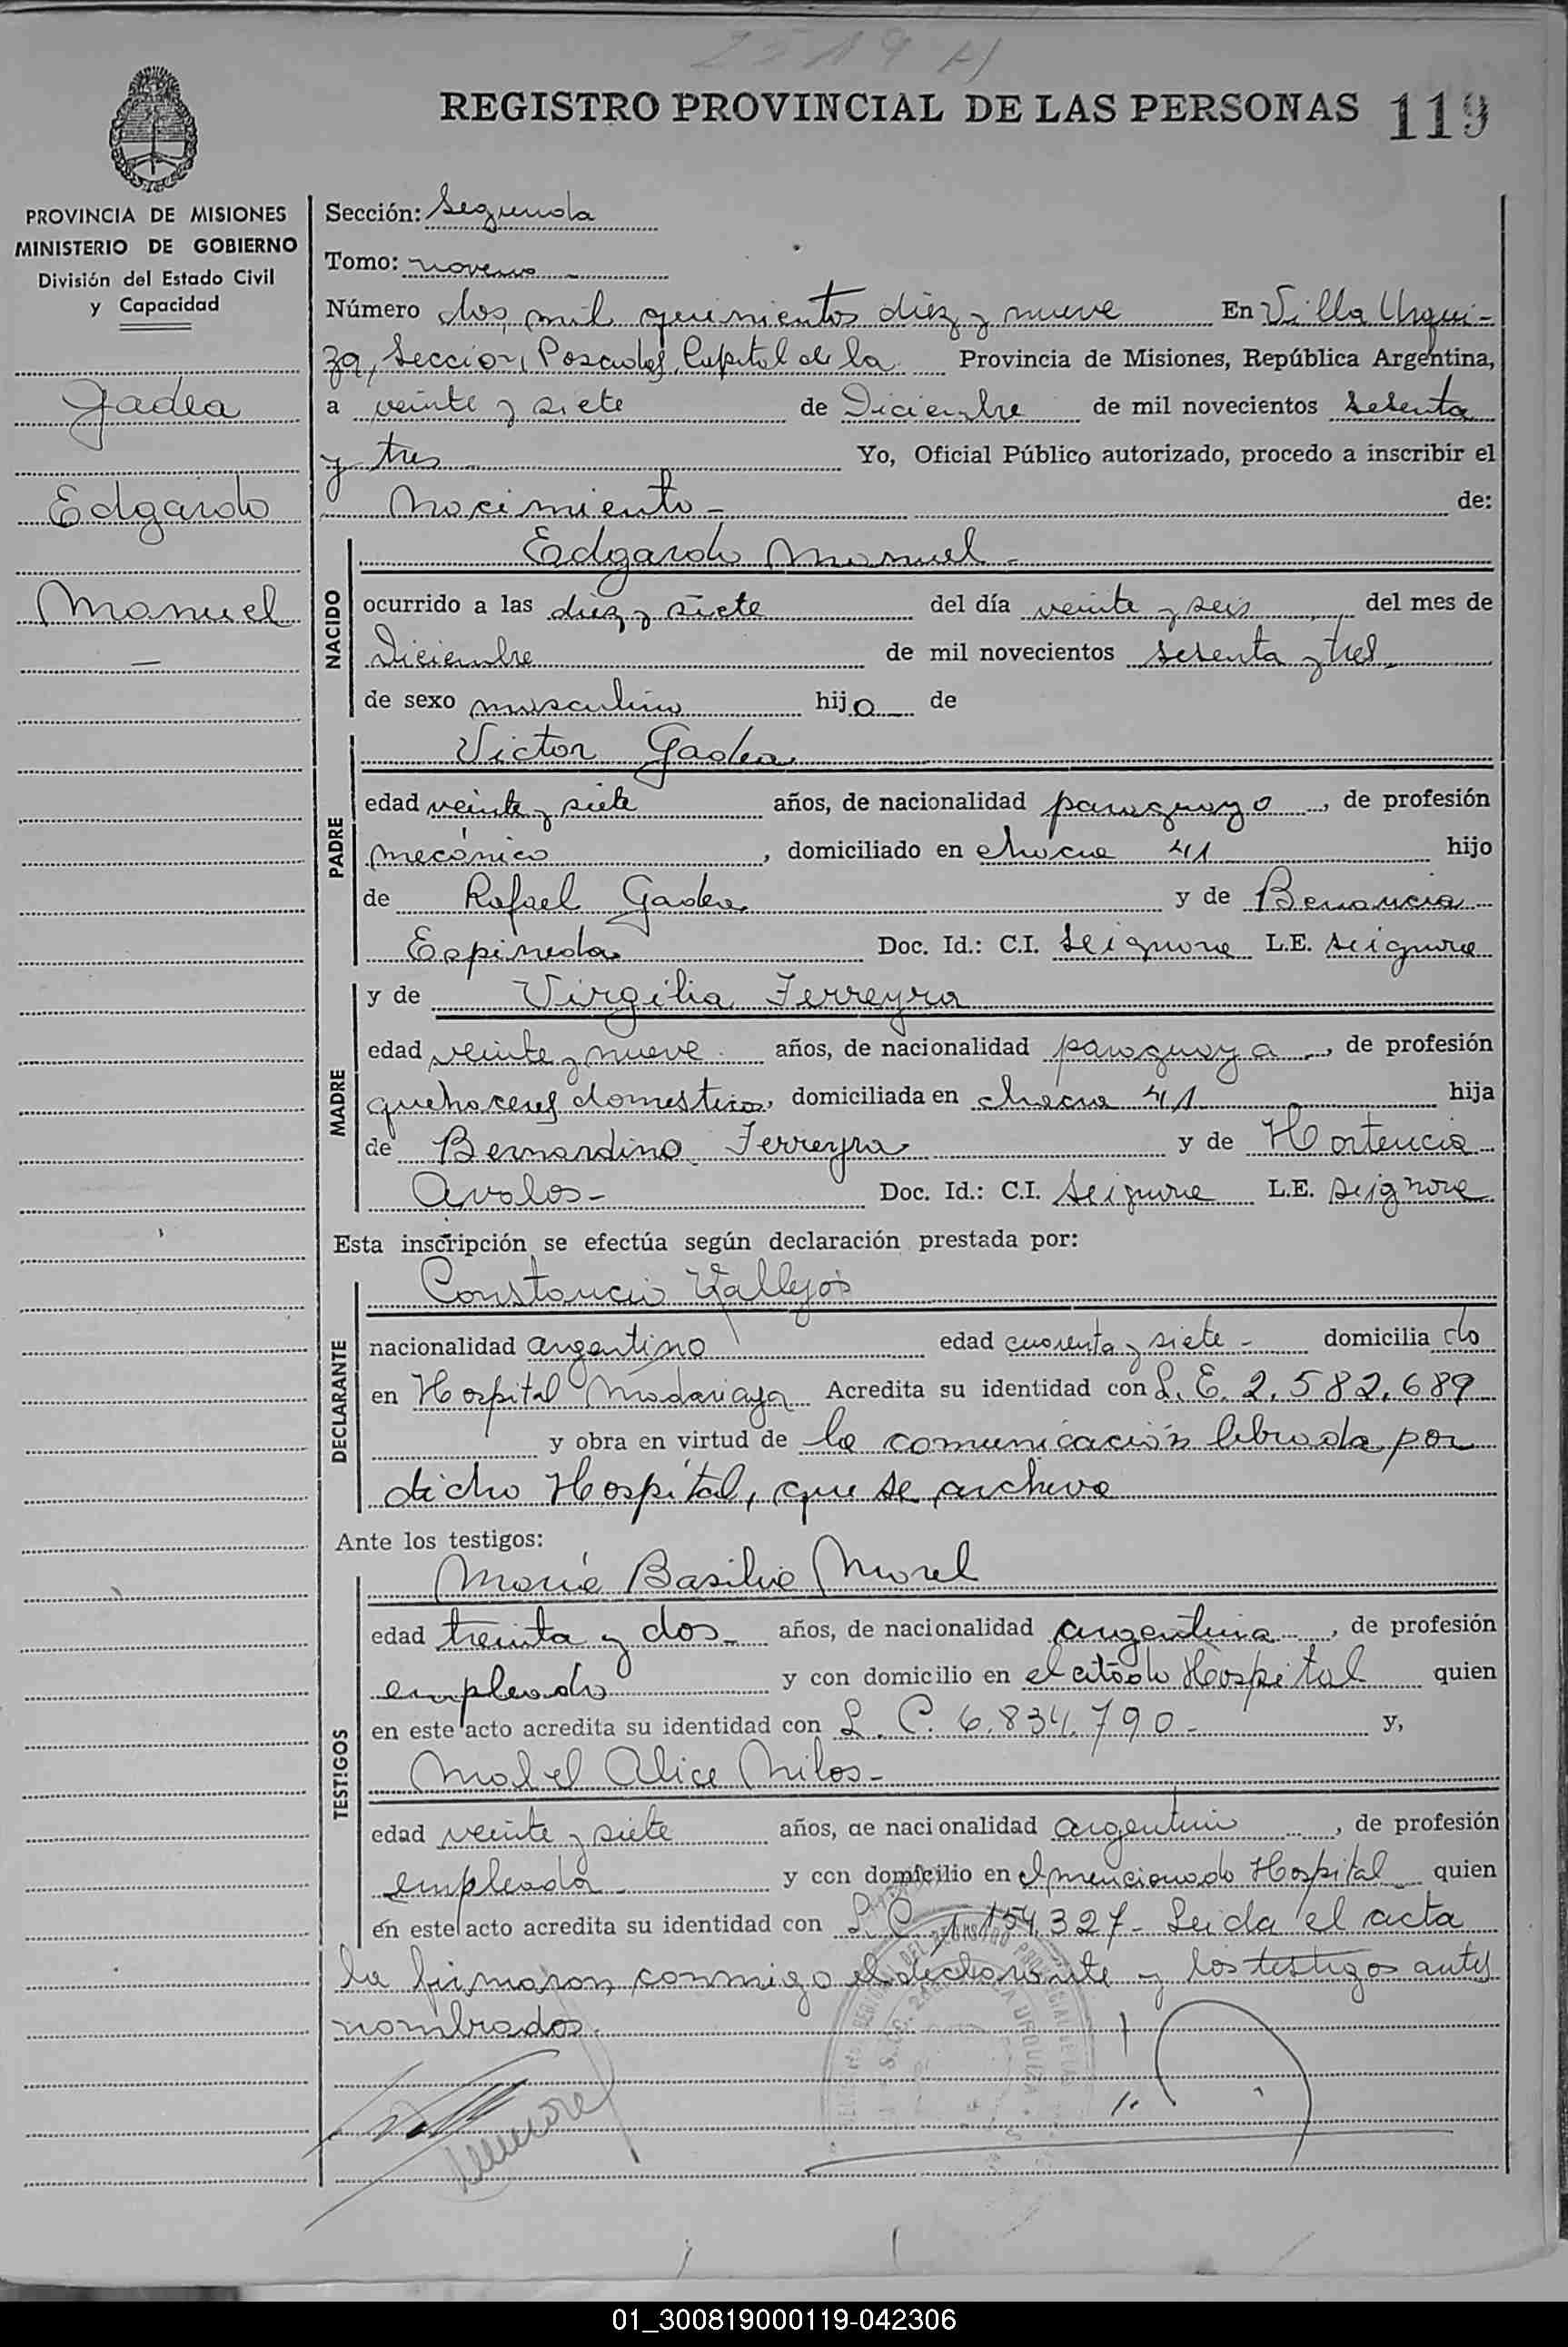 2519 A)
REGISTRO PROVINCIAL DE LAS PERSONAS 119
PROVINCIA DE MISIONES
MINISTERIO DE GOBIERNO
División del Estado Civil
y Capacidad
Gadea
Edgardo
Manuel
Sección: Segunda
Tomo: noveno
Número dos mil quinientos diez y nueve En Villa Urqui-
za, Sección, Posadas, Capital de la Provincia de Misiones, República Argentina,
a veinte y siete de Diciembre de mil novecientos setenta
y tres Yo, Oficial Público autorizado, procedo a inscribir el
Nacimiento - de:
NACIDO
Edgardo Manuel -
ocurrido a las diez y siete del día veinte y seis del mes de
Diciembre de mil novecientos setenta y tres
de sexo masculino hijo de
PADRE
Victor Gadea
edad veinte y siete años, de nacionalidad paraguayo, de profesión
mecánico, domiciliado en chacra 41 hijo
de Rafael Gadea y de Benancia
Espineda Doc. Id.: C.I. se ignora L.E. se ignora
MADRE
y de Virgilia Ferreyra
edad veinte y nueve años, de nacionalidad paraguaya, de profesión
quehaceres domesticos, domiciliada en chacra 41 hija
de Bernardino Ferreyra y de Hortencia
Avalos - Doc. Id.: C.I. se ignora L.E. se ignora
Esta inscripción se efectúa según declaración prestada por:
DECLARANTE
Constancio Vallejos
nacionalidad argentino edad cuarenta y siete - domicilia do
en Hospital Madariaga Acredita su identidad con L. E. 2.582.689
y obra en virtud de la comunicación librada por
dicho Hospital, que se archiva
Ante los testigos:
TESTIGOS
María Basilia Morel
edad treinta y dos - años, de nacionalidad argentina, de profesión
empleada y con domicilio en el citado Hospital quien
en este acto acredita su identidad con L. C. 6.834.790 - y,
Mabel Alice Milos -
edad veinte y siete años, de nacionalidad argentina, de profesión
empleada y con domicilio en el mencionado Hospital quien
en este acto acredita su identidad con L. C. 154.327 - Leida el acta
la firmaron conmigo el declarante y los testigos antes
nombrados.
01_300819000119-042306